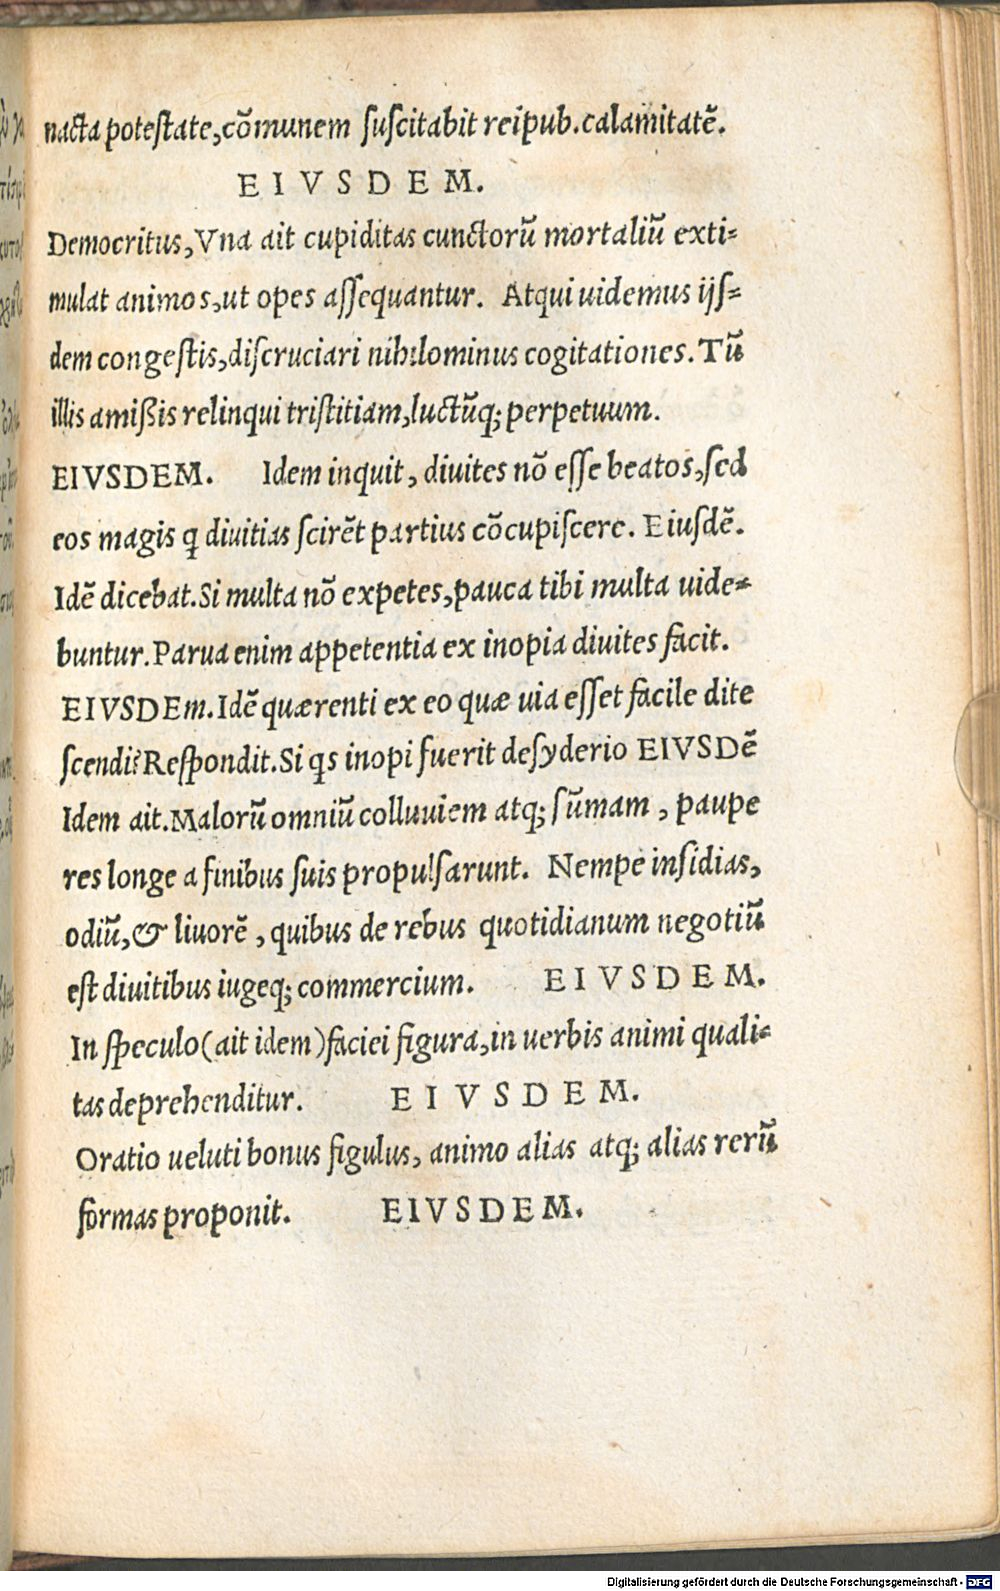 nacta potestate,cõmunem suscitabit reipub.calamitatẽ.
E I V S D E M.
Democritus,Vna ait cupiditas cunctorũ mortaliũ exti-
mulat animos,ut opes assequantur. Atqui uidemus ijs-
dem congestis,discruciari nihilominus cogitationes.Tũ
illis amißis relinqui tristitiam,luctũq; perpetuum.
EIVSDEM. Idem inquit, diuites nõ esse beatos,sed
eos magis q̃ diuitias scirẽt partius cõcupiscere. Eiusdẽ.
Idẽ dicebat.Si multa nõ expetes,pauca tibi multa uide-
buntur.Parua enim appetentia ex inopia diuites facit.
EIVSDEm.Idẽ quærenti ex eo quæ uia esset facile dite
scendi?Respondit.Si qs inopi fuerit desyderio EIVSDẽ
Idem ait.Malorũ omniũ colluuiem atq; sũmam , paupe
res longe a finibus suis propulsarunt. Nempe insidias,
odiũ,& liuorẽ , quibus de rebus quotidianum negotiũ
est diuitibus iugeq; commercium. E I V S D E M.
In speculo(ait idem)faciei figura,in uerbis animi quali-
tas deprehenditur. E I V S D E M.
Oratio ueluti bonus figulus, animo alias atq; alias rerũ
formas proponit. EIVSDEM.
Digitalisierung gefördert durch die Deutsche Forschungsgemeinschaft - DFG